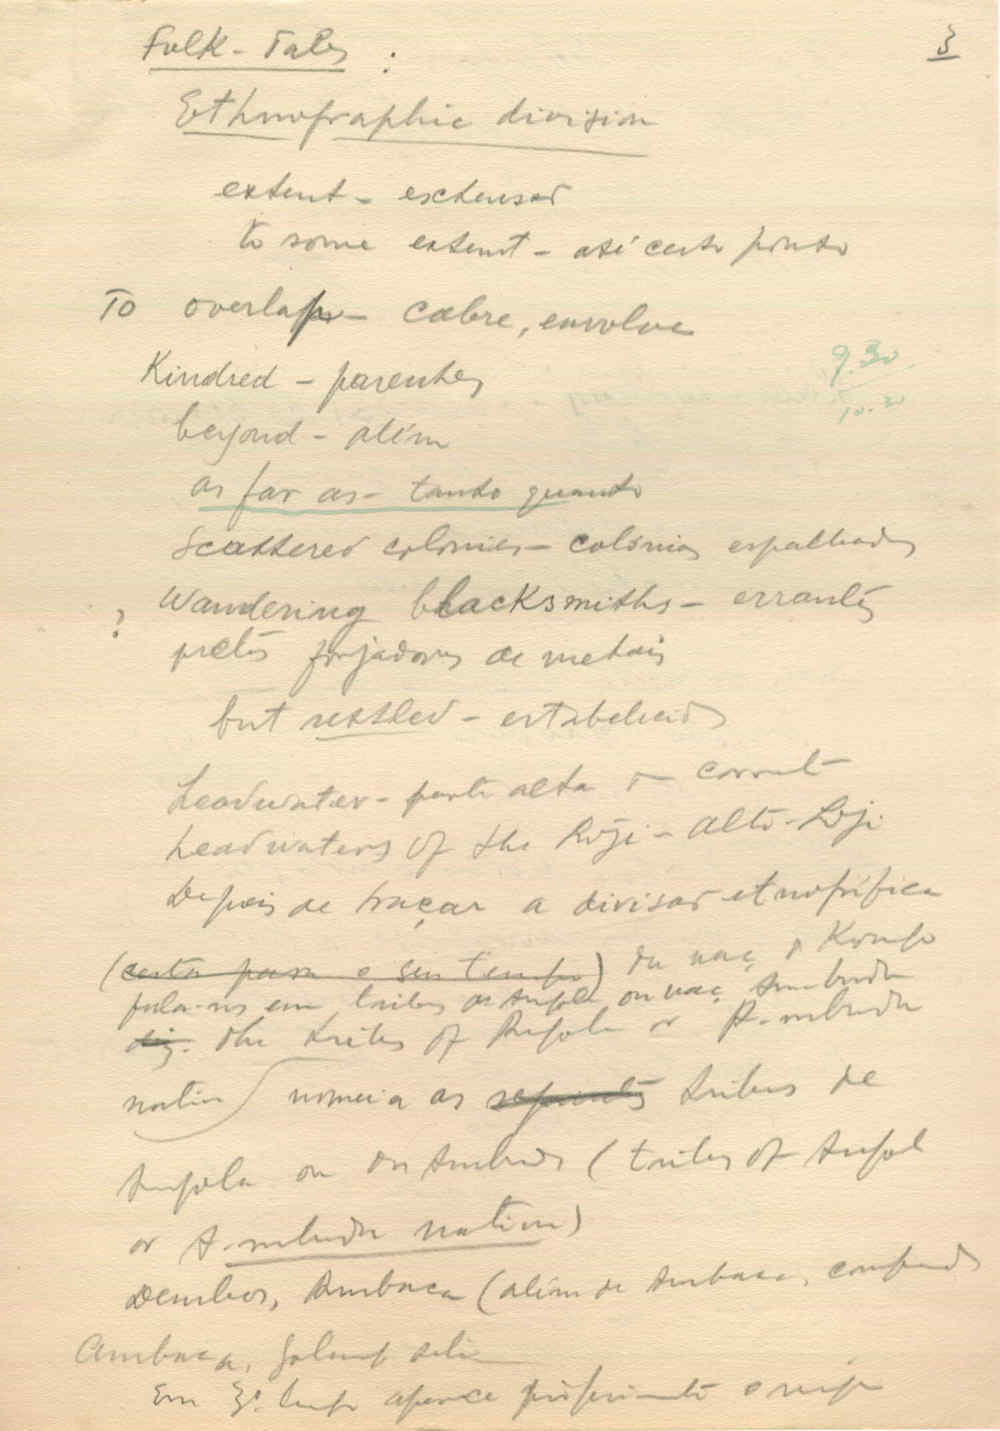 Folk-Tales :
3
Ethnographic division
extent - extensão
to some extent - até certo ponto
To overlap - cobre, envolve
9.30
Kindred - parentes
10.30
beyond - além
as far as - tanto quanto
Scattered colonies - colónias espalhadas
? Wandering blacksmiths - errantes
pretos forjadores de metais
but settled - estabelecidos
Headwater - parte alta corrente
headwaters of the Loji - Alto-Loji
Depois de traçar a divisão etnográfica
da nação Kongo
fala-nos em tribus de Angola ou nação Ambundu
the tribes of Angola or A-mbundu
nation nomeia as tribus de
Angola ou dos Ambundos (tribes of Angola
or A-mbundu nation)
Dembos, Ambaca (além de Ambaca,
Ambaca, Golungo Alto
Em